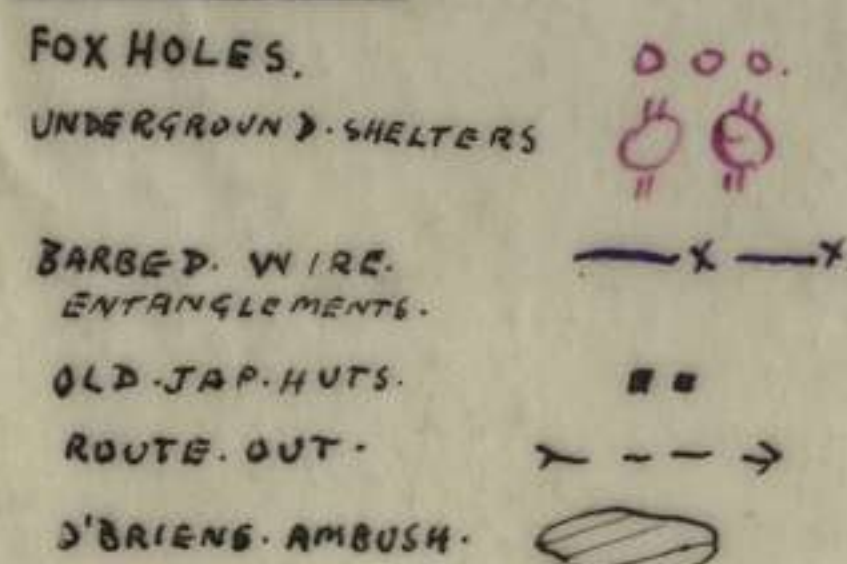 FOX HOLES.
UNDERGROUND. SHELTERS
BARBED. WIRE.
ENTANGLEMENTS.
OLD. JAP. HUTS.
ROUTE. OUT.
O'BRIENS. AMBUSH.